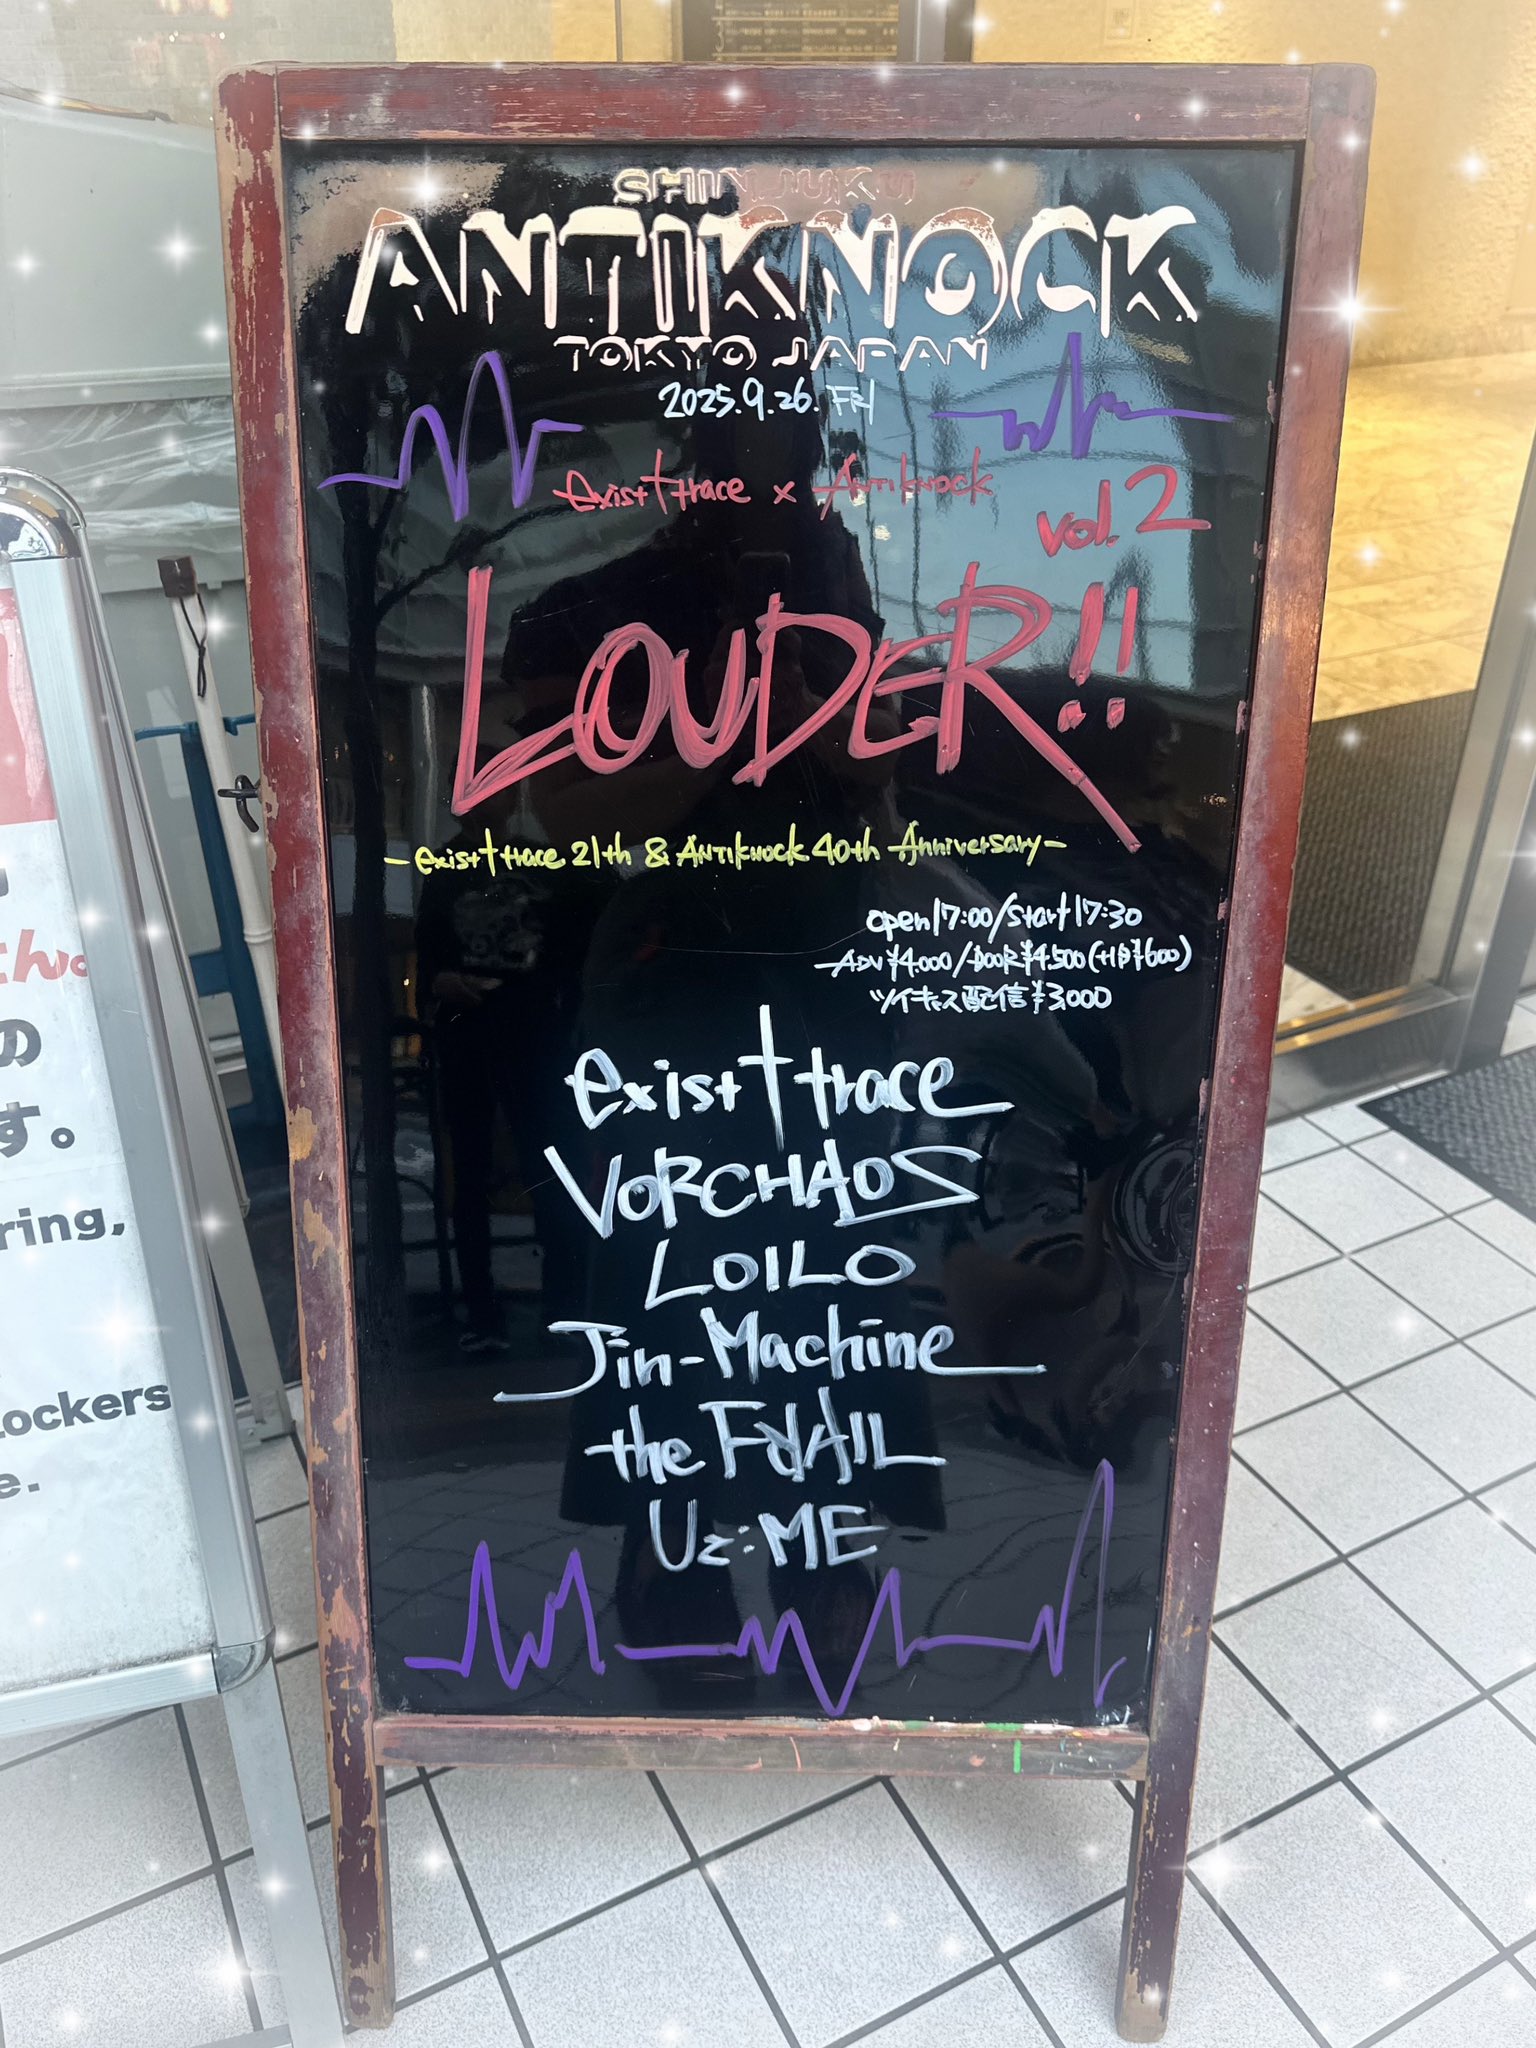 SHINJUKU
ANTIKNOCK
TOKYO JAPAN
2025.9.26. FRI
exist†trace x ANTIKNOCK
vol.2
LOUDER!!
-exist†trace 21th & ANTIKNOCK 40th Anniversary-
open17:00/start17:30
ADV¥4.000/DOOR¥4.500(+1D¥600)
ツイキャス配信¥3,000
exist†trace
VORCHAOS
LOILO
Jin-Machine
the
Uz:ME
さん。
の
す。
ring,
Lockers
e.